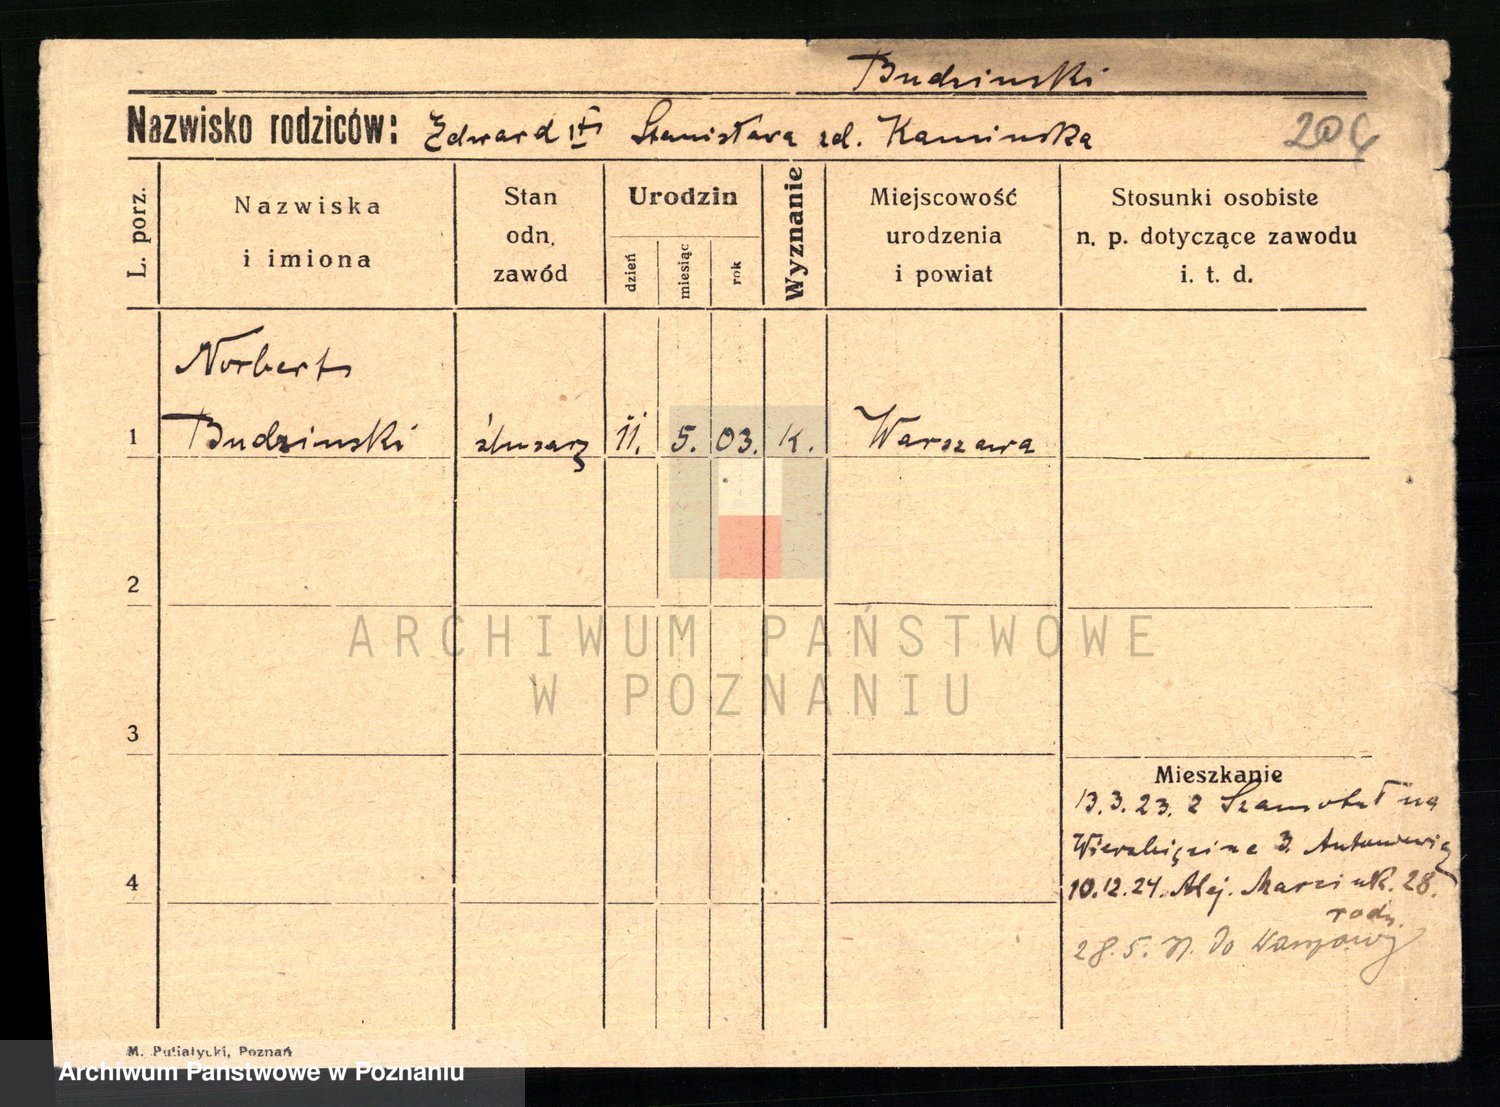 Budzinski
Nazwisko rodziców: Edward Stanisława zd. Kaminska
206
L. porz.
Nazwiska
i imiona
Stan
odn.
zawód
Urodzin
dzień
miesiąc
rok
Wyznanie
Miejscowość
urodzenia
i powiat
Stosunki osobiste
n. p. dotyczące zawodu
i. t. d.
Norbert
1 Budzinski ślusarz 11. 5. 03. K. Warszawa
2
3
4
ARCHIWUM PAŃSTWOWE
W POZNANIU
Mieszkanie
13.3.23. z Szamotuł na
Wierzbięcine 3. Antoniewicz
10.12.24. Alej. Marcink. 28.
rodz.
28.5. Do Warszawy
M. Putiatycki, Poznań
Archiwum Państwowe w Poznaniu